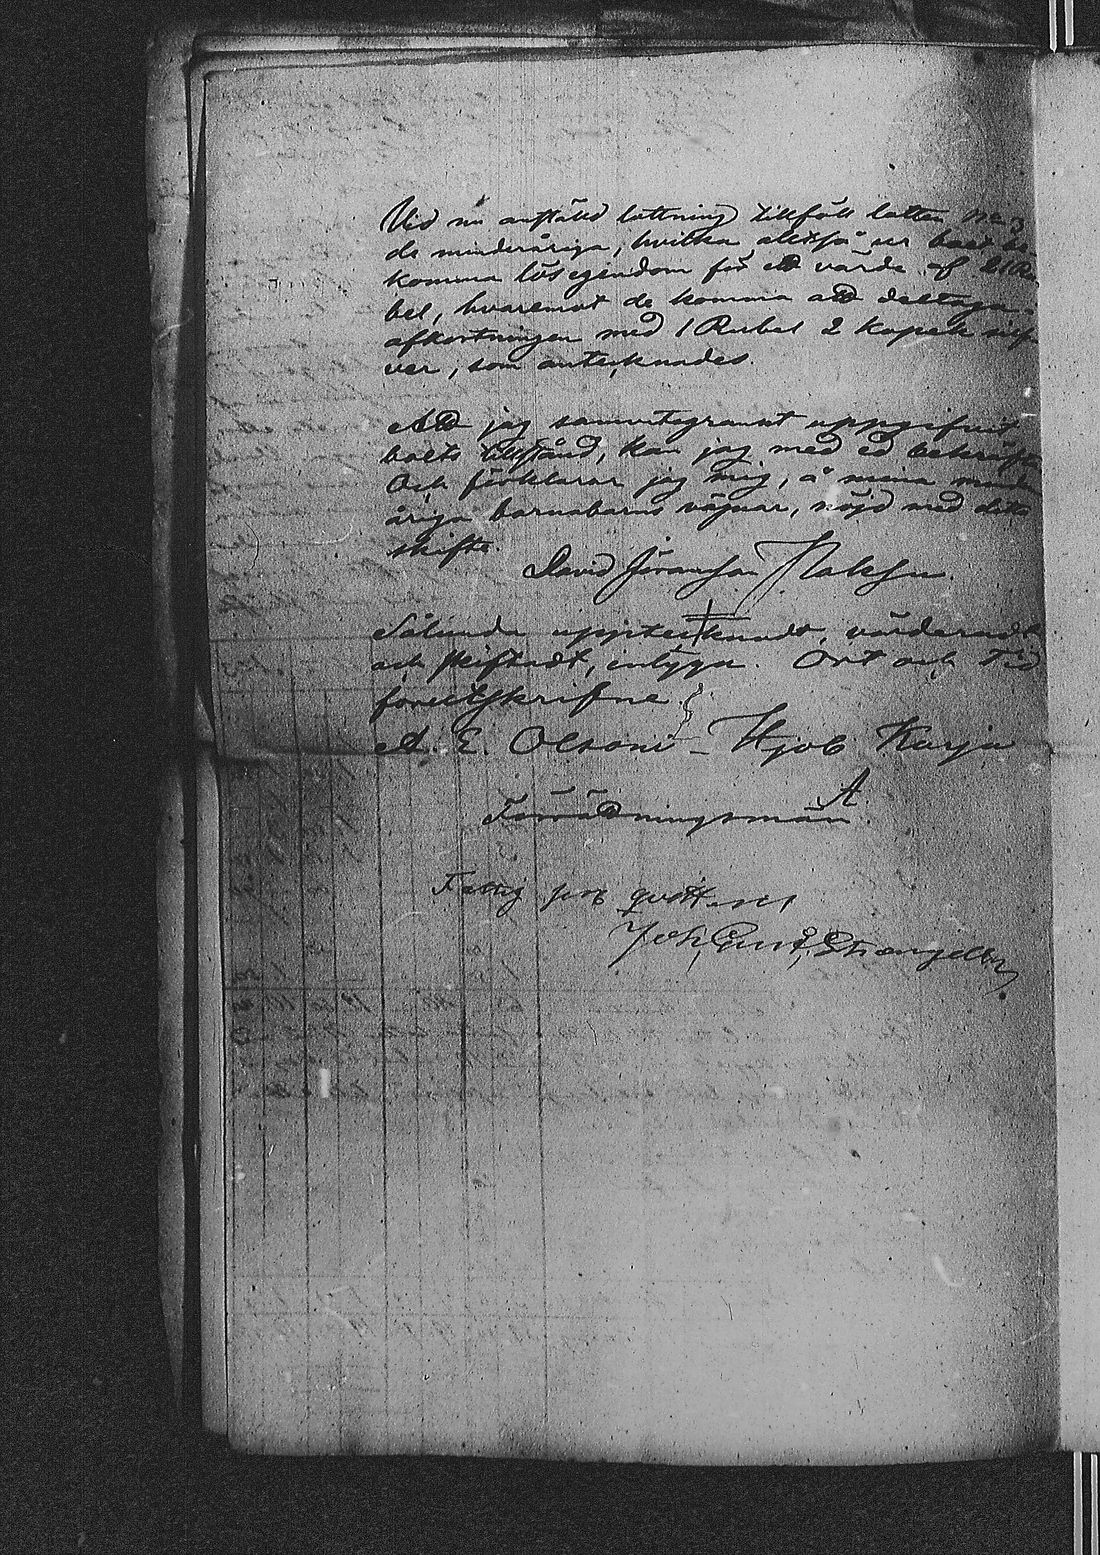 Vid nu anstäld lottning tillföll lotten No 3
de minderåriga, hvilka alltså ur boet be
komma lösegendom för ett värde af 21 Ru
bel, hvaremot de komma att deltaga i
afkortningen med 1 Rubel 2 kopek silf
ver, som antecknades.
Att jag samvetsgrannt uppgifvit
boets tillstånd, kan jag med ed bekräfta
Och förklarar jag mig, å mina minder
åriga barnabarns vägnar, nöjd med detta
skifte.
David Jöransson
Sålunda upptecknadt, värderadt
och skiftadt, intyga. Ort och tid
förutskrifne
A. E. Olsoni - Hjob Karja
Förrättningsmän
Fattig proc qvitteras
Joh. Gust.